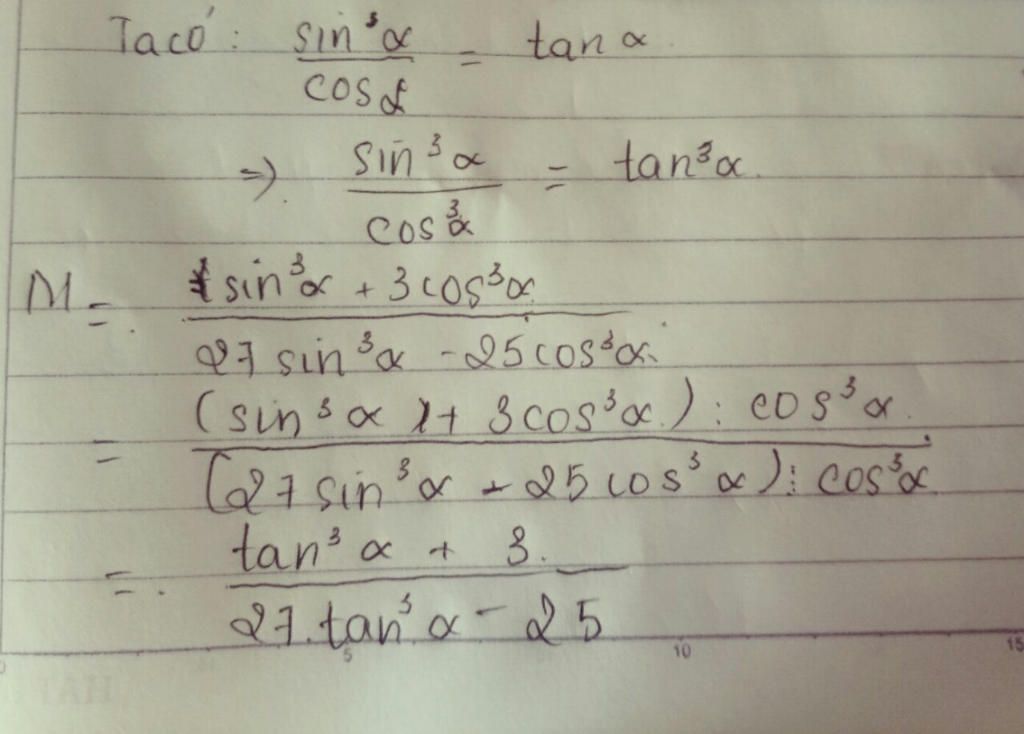 Ta có : sin³α / cosα = tan α
=> sin³α / cos³α = tan³α.
M = sin³α + 3cos³α / 27 sin³α - 25cos³α.
= (sin³α + 3cos³α) : cos³α / (27 sin³α - 25cos³α) : cos³α
= tan³α + 3 / 27.tan³α - 25
0 5 10 15